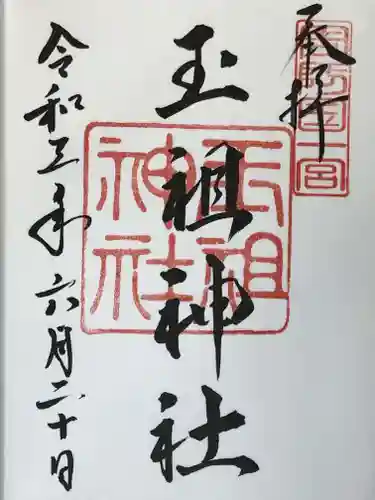 奉拝
周防国一宮
玉祖神社
玉祖
神社
令和三年六月二十日